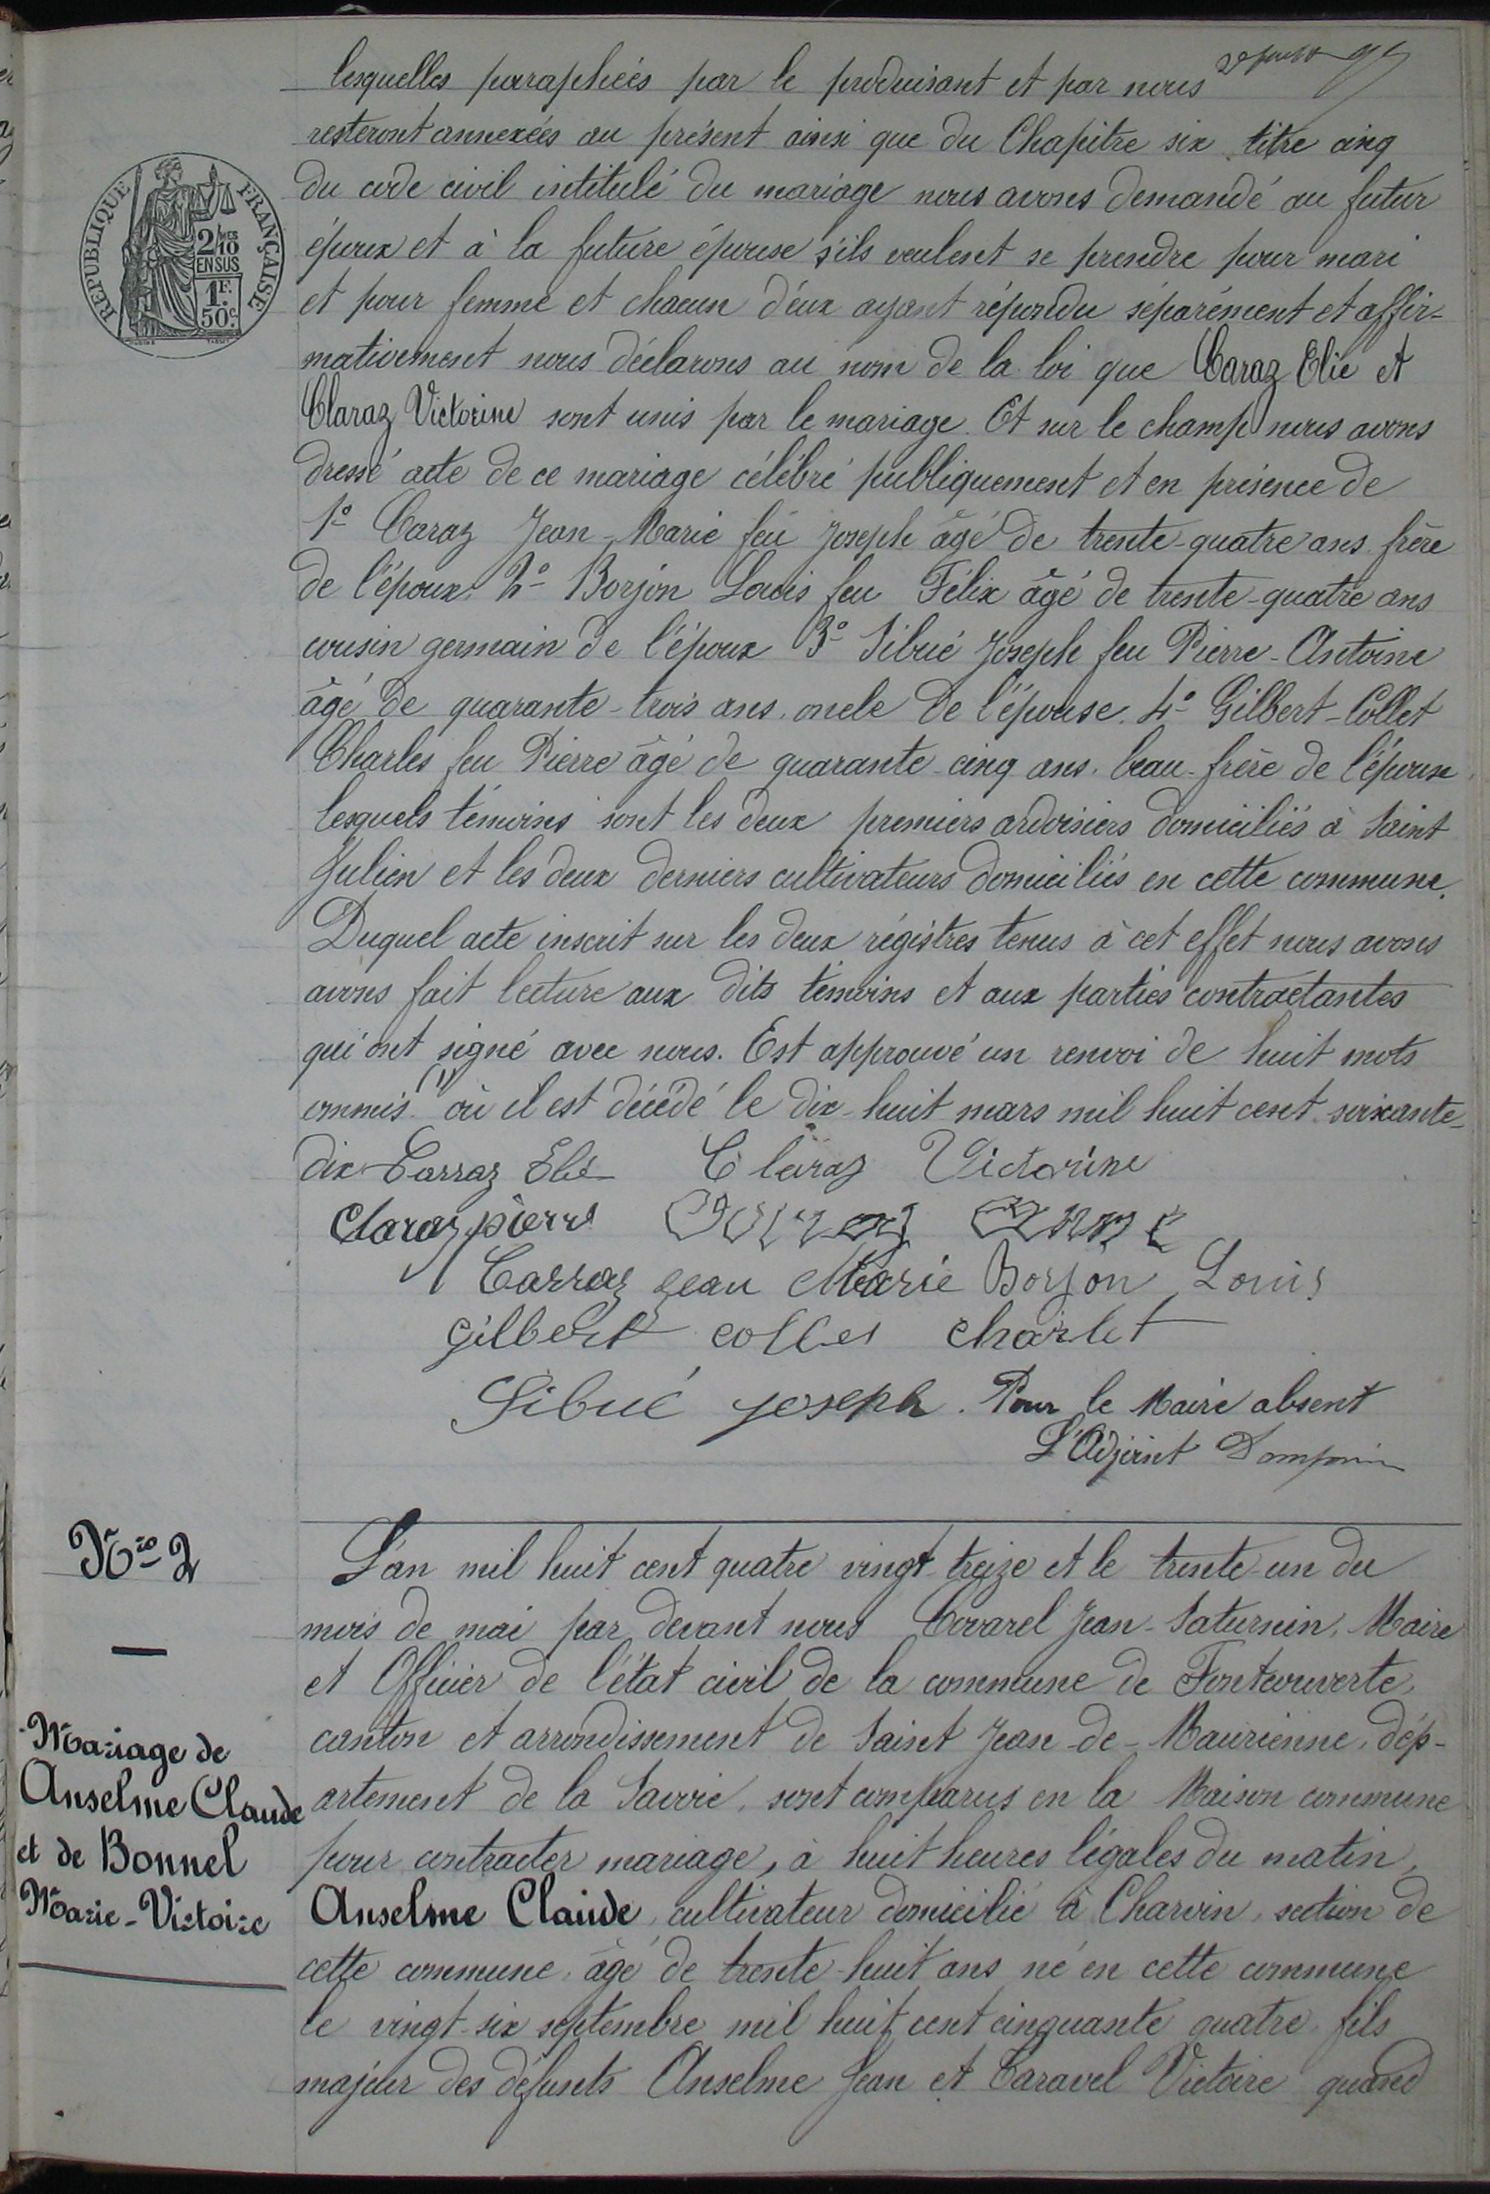 lesquelles paraphées par le produisant et par nous
resteront annexées au présent ainsi que du Chapitre six titre cinq
du code civil intitulé du mariage nous avons demandé au futur
époux et à la future épouse s'ils veulent se prendre pour mari
et pour femme et chacun d'eux ayant répondu séparément et affir-
mativement nous déclarons au nom de la loi que Caraz Elie et
Claraz Victorine sont unis par le mariage. Et sur le champ nous avons
dressé acte de ce mariage célébré publiquement et en présence de
1º Caraz Jean-Marie feu Joseph âgé de trente-quatre ans frère
de l'époux. 2º Borjon Louis feu Félix âgé de trente-quatre ans
cousin germain de l'époux 3º Sibué Joseph feu Pierre-Antoine
âgé de quarante-trois ans, oncle de l'épouse. 4º Gilbert-Collet
Charles feu Pierre âgé de quarante-cinq ans, beau-frère de l'épouse,
lesquels témoins sont les deux premiers ardoisiers domiciliés à Saint
Julien et les deux derniers cultivateurs domiciliés en cette commune.
Duquel acte inscrit sur les deux régistres tenus à cet effet nous avons
avons fait lecture aux dits témoins et aux parties contractantes
qui ont signé avec nous. Est approuvé un renvoi de huit mots
ommis. (1) où il est décédé le dix-huit mars mil huit cent soixante-
dix Carraz Elie Claraz Victorine
Claraz pierre
Carraz jean Marie Borjon Louis
gilbert collet charlet
Sibué joseph. Pour le Maire absent
L'Adjoint
REPUBLIQUE FRANÇAISE
2/10 EN SUS
1F. 50c.
Nro 2
Mariage de
Anselme Claude
et de Bonnel
Marie-Victoire
L'an mil huit cent quatre vingt-treize et le trente-un du
mois de mai par devant nous Covarel Jean-Saturnin, Maire
et Officier de l'état civil de la commune de Fontcouverte,
canton et arrondissement de Saint Jean-de-Maurienne, dép-
artement de la Savoie, sont comparus en la Maison commune
pour contracter mariage, à huit heures légales du matin,
Anselme Claude, cultivateur domicilié à Charvin, section de
cette commune, âgé de trente-huit ans né en cette commune
le vingt-six septembre mil huit cent cinquante quatre, fils
majeur des défunts Anselme Jean et Caravel Victoire quand